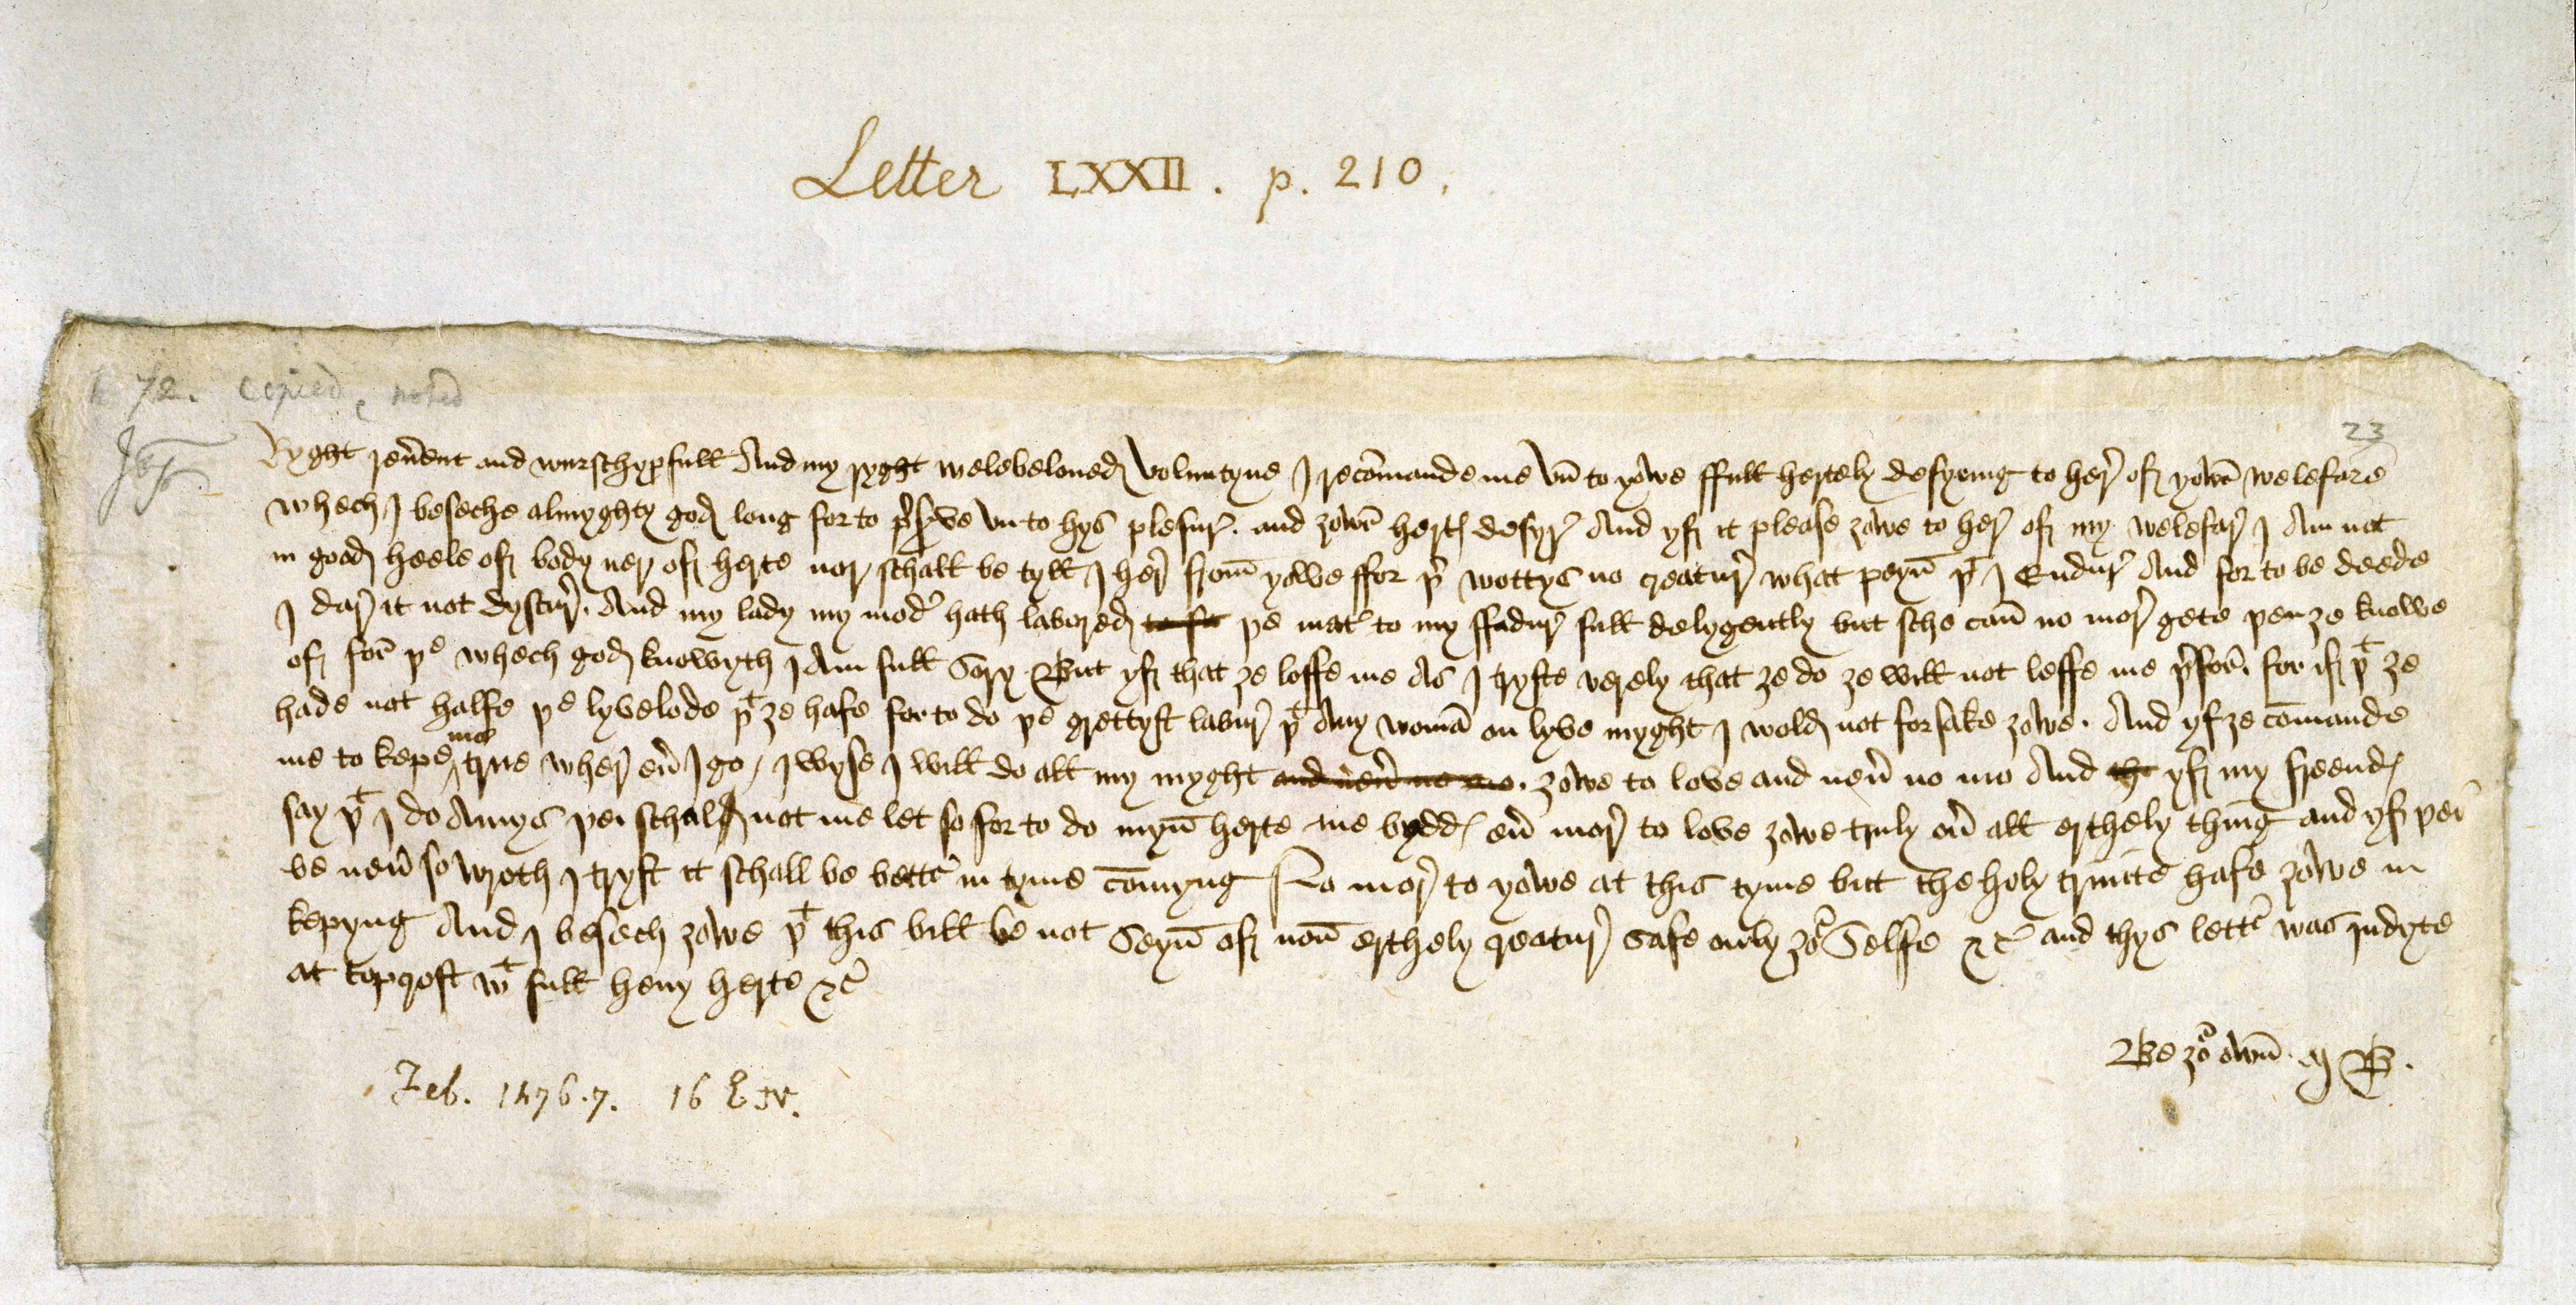 Letter LXXII. p. 210.
72. copied, noted
23
Ryght reuˀent and wurschypfull And my ryght welebeloued Voluntyne I recōmande me vn̄ to yowe ffull hertely desyring to herˀ off yowrˀ welefare
whech I beseche almyghty god long for to pˀserve vn to hys plesurˀ. and ȝowrˀ hertꝭ desyrˀ And yff it please ȝowe to her off my welefarˀ I Am not
in good heele off body ner off herte nor schall be tyll I herˀ from̄ yowe ffor þˀ wottys no creaturˀ what peyn̄ þᵗ I Endurˀ And for to be deede
I darˀ it not dyscurˀ. And my lady my modˀ hath labored to ff þe matˀ to my ffadurˀ full delygently but sche can̄ no morˀ gete þen ȝe knowe
off forˀ þᵉ whech god knowyth I Am full Sory But yff that ȝe loffe me As I tryste verely that ȝe do ȝe will not leffe me þˀforˀ. for iff þᵗ ȝe
hade not halfe þᵉ lyvelode þᵗ ȝe hafe for to do þᵉ grettyst laburˀ þᵗ Any womā on lyve myght I wold not forsake ȝowe. And yf ȝe cōmande
me to kepe me true wherˀ euˀ I go / I wyse I will do all my myght and neuˀ no mo. ȝowe to love and neuˀ no mo And tht yff my freendꝭ
say þᵗ I do Amys þei schal not me let so for to do myn̄ herte me byddꝭ euˀ morˀ to love ȝowe truly ouˀ all erthely thing and yff þei
be neuˀ so wroth I tryst it schall be bettˀ in tyme cōmyng No morˀ to yowe at this tyme but the holy trinite hafe ȝowe in
kepyng And I besech ȝowe þᵗ this bill be not Seyn̄ off non̄ erthely creaturˀ safe only ȝoʳ Selfe &cˀ and thys lettˀ was Indyte
at topcroft wᵗ full heuy herte &cˀ
Be ȝoʳ own̄. M B.
Feb. 1476.7. 16 E IV.